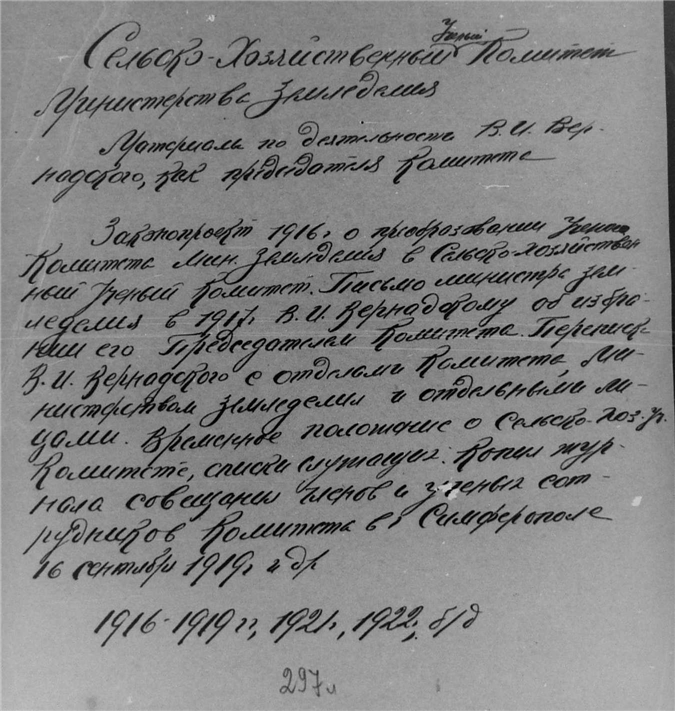 Сельско-Хозяйственный Ученый Комитет
Министерства Земледелия
Материалы по деятельности В.И. Вер-
надского, как председателя Комитета
Законопроект 1916г. о преобразовании Ученого
Комитета Мин. Земледелия в Сельско-Хозяйствен
ный Ученый Комитет. Письмо министра зем-
леделия в 1917г. В.И. Вернадскому об избра-
нии его Председателем Комитета. Переписка
В.И. Вернадского с отделами Комитета, Ми-
нистерством Земледелия и отдельными ли-
цами. Временное положение о Сельско-хоз. Уч.
Комитете, списки служащих. Копия жур-
нала совещания членов и ученых сот-
рудников Комитета в г. Симферополе
16 сентября 1919г. и др
1916-1919 гг, 1921г, 1922, б/д
297 л